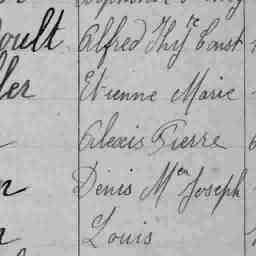 oult Alfred Thy re Const
ler Etienne Marie
Alexis Pierre
n Denis M en Joseph
n Louis